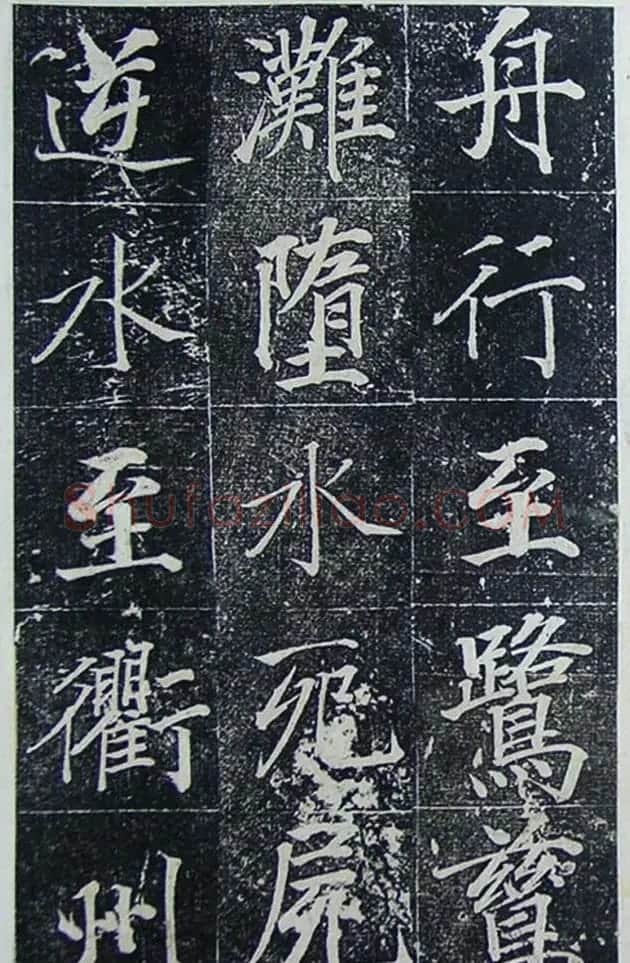 舟行至鷺鶿
灘墮水死屍
逆水至衢州
shufaziliao.COM